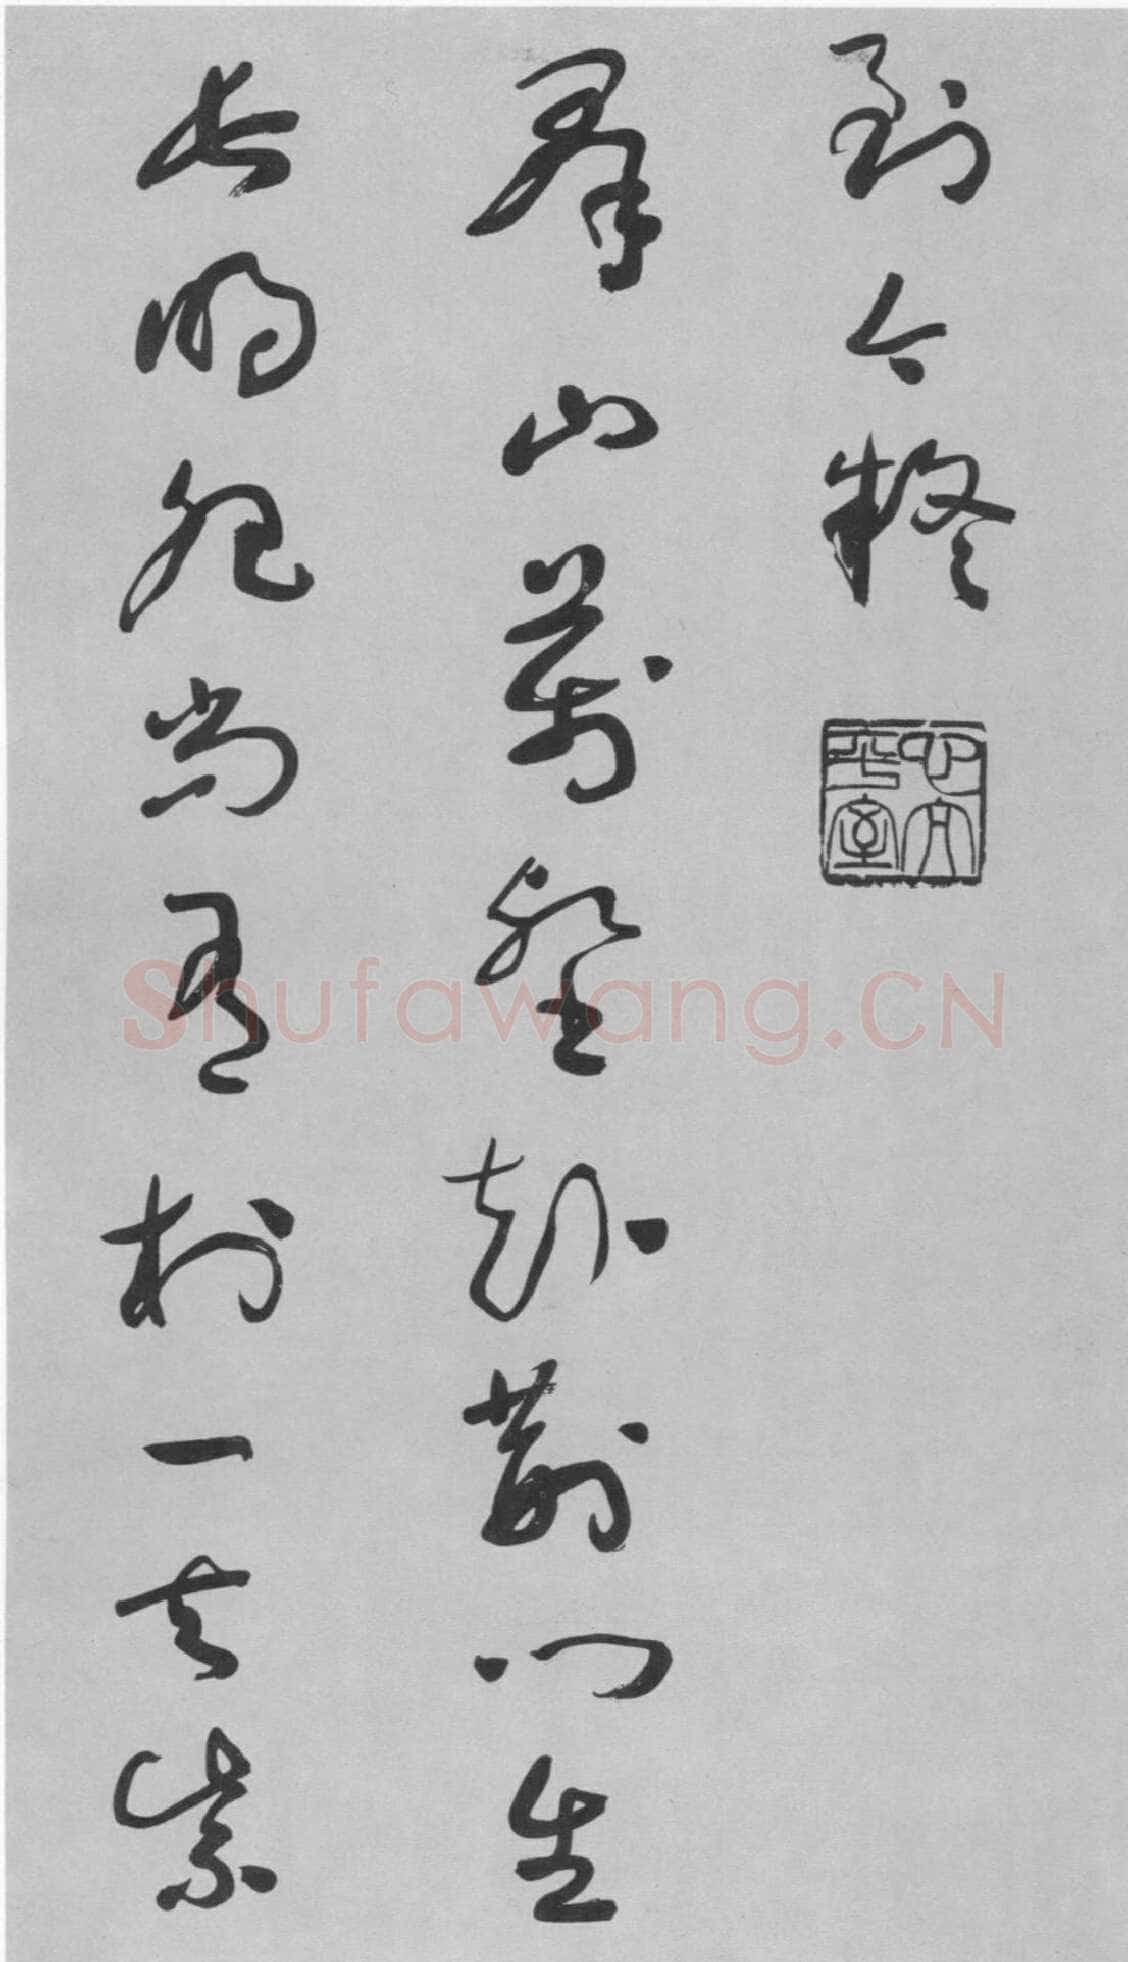 到今疑
群山萬壑赴荆門生
長明妃尚有村一去紫
Shufawang.CN